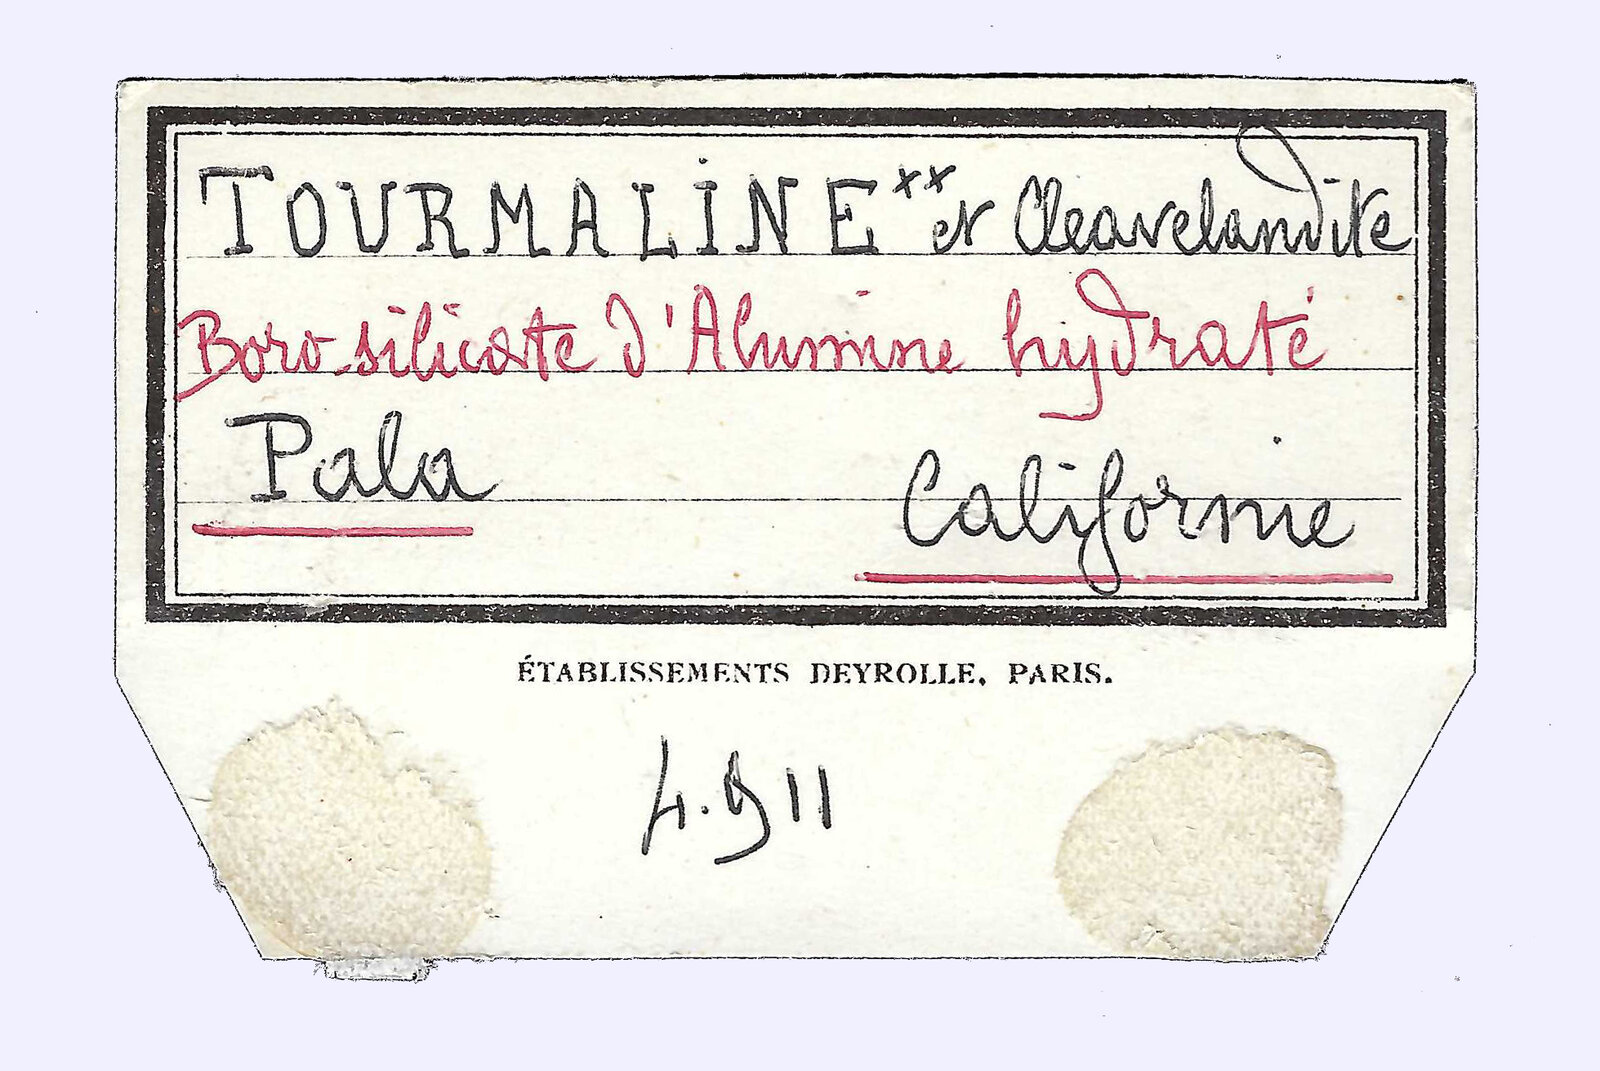 TOURMALINE xx et Cleavelandite
Boro-silicate d'Alumine hydraté
Pala Californie
ÉTABLISSEMENTS DEYROLLE, PARIS.
4.911